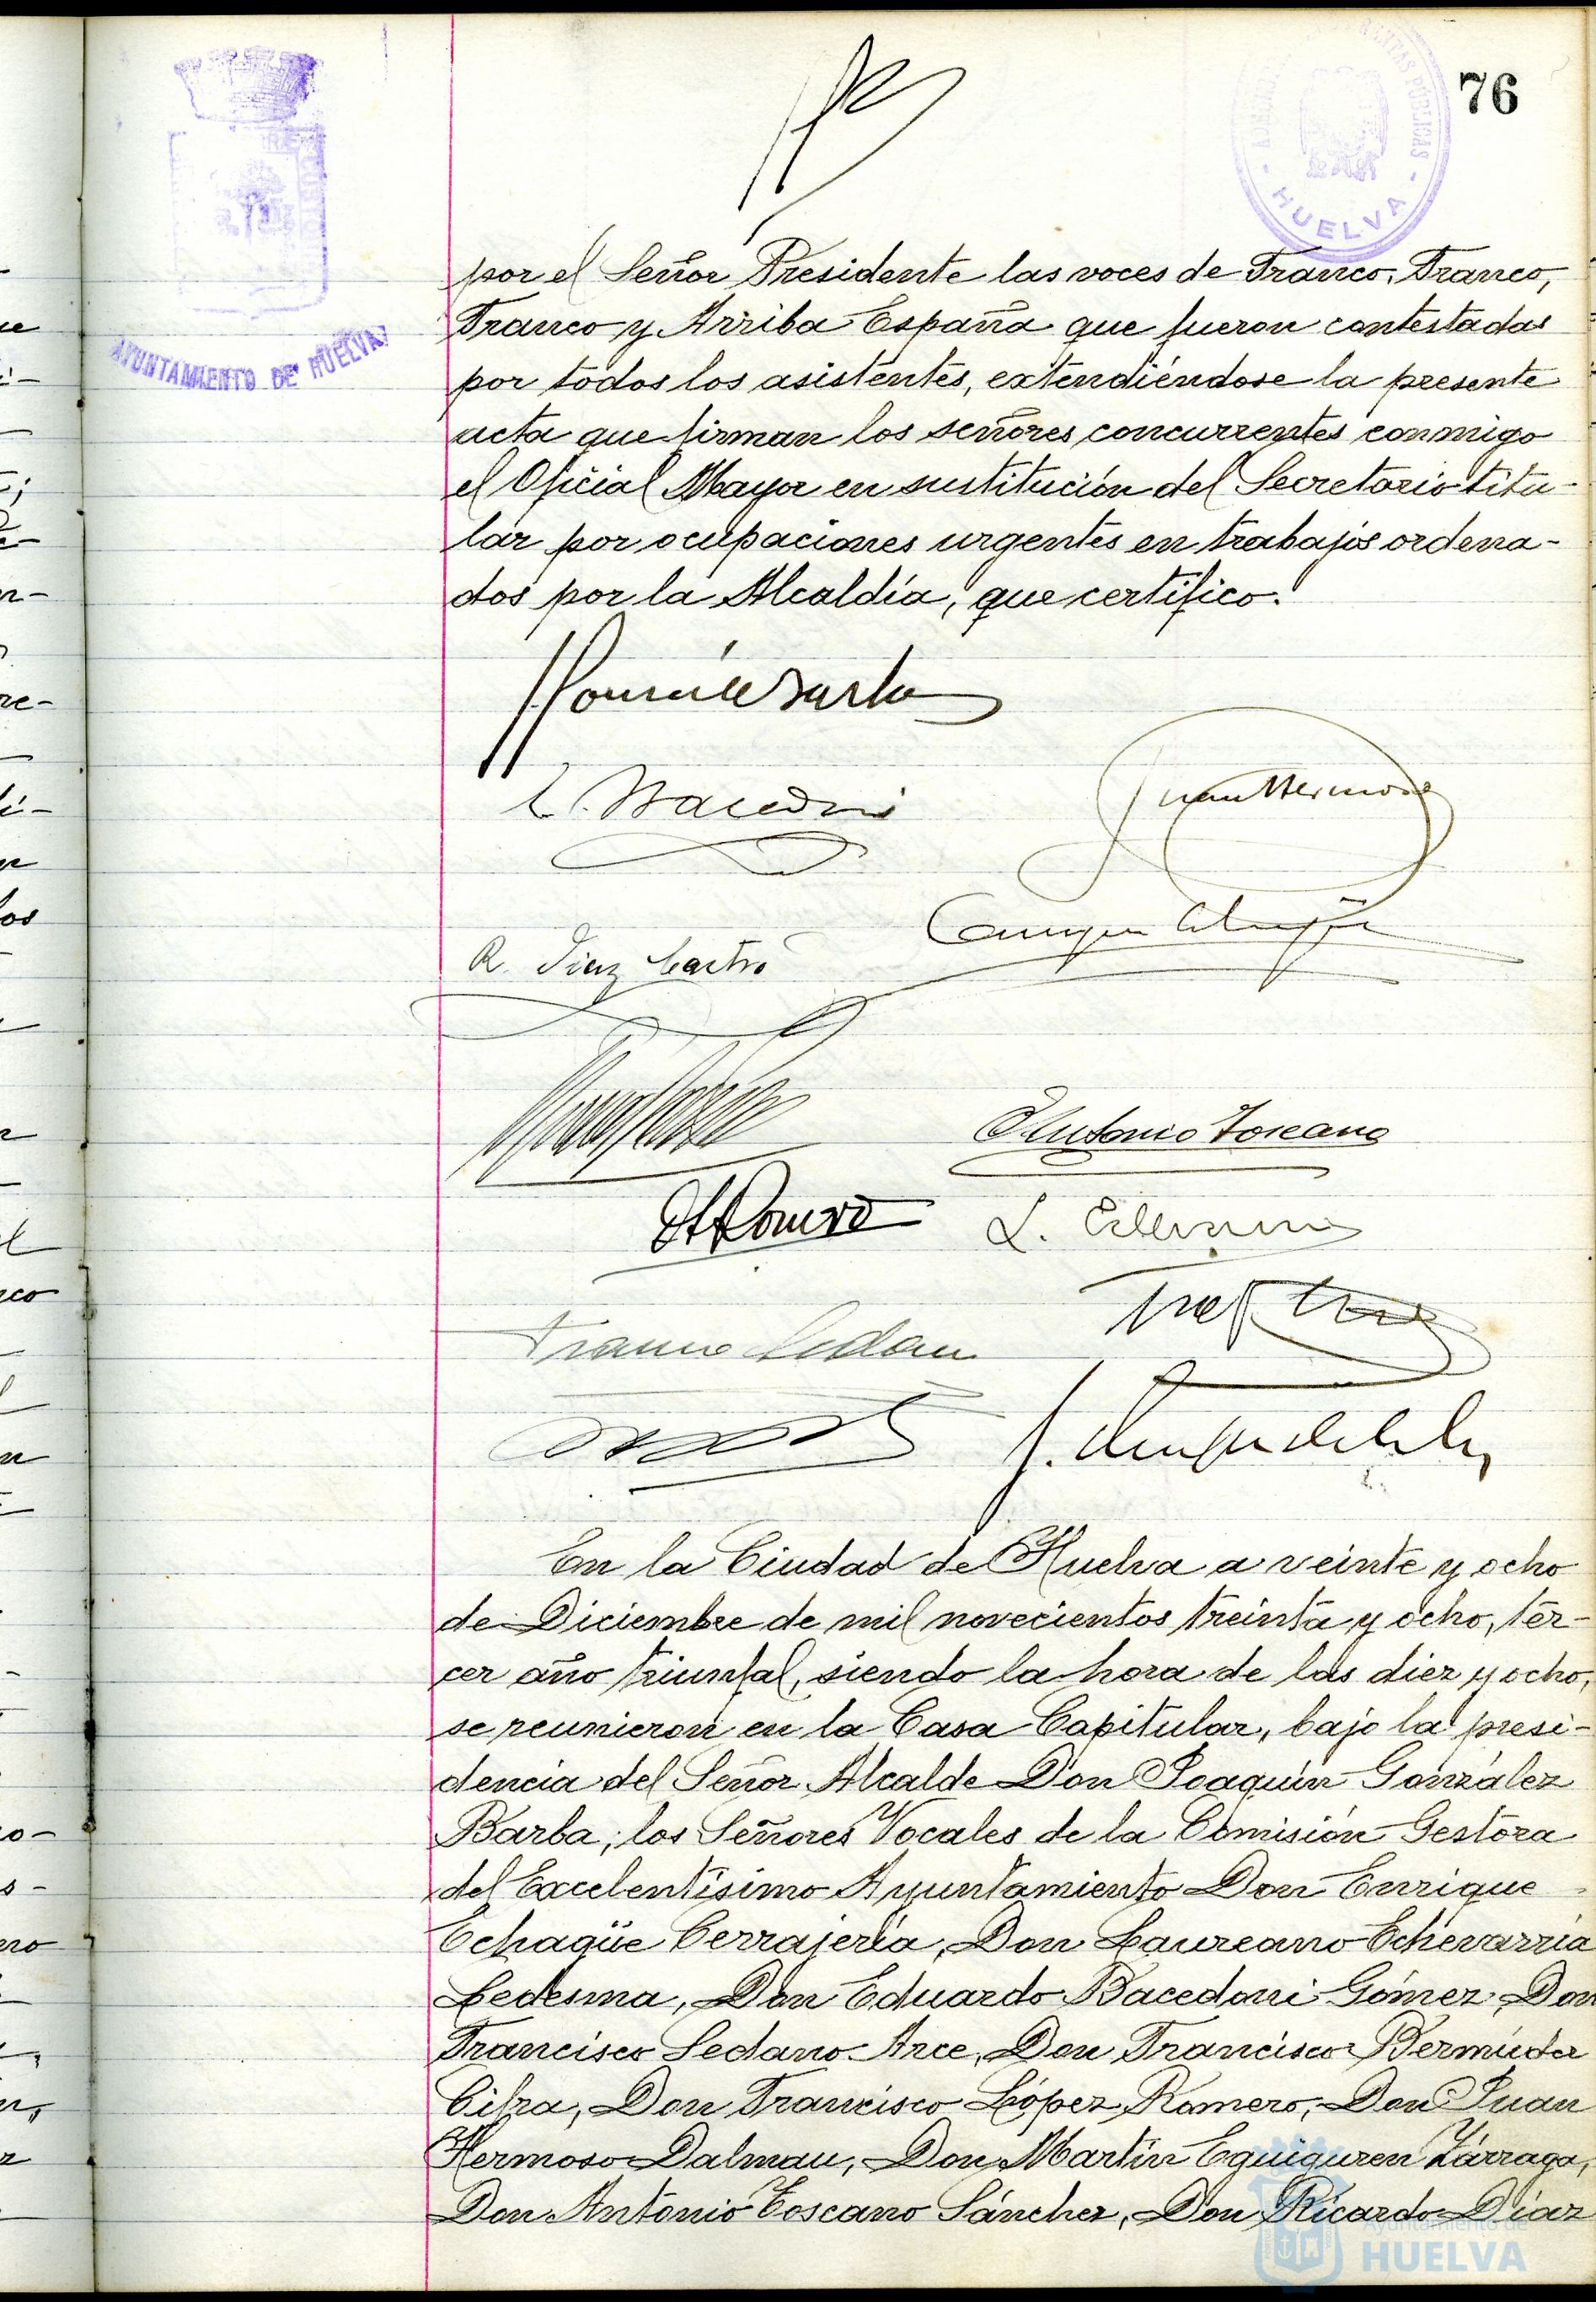 76
AYUNTAMIENTO DE HUELVA
RENTAS PUBLICAS - HUELVA -
por el Señor Presidente las voces de Franco, Franco,
Franco y Arriba España que fueron contestadas
por todos los asistentes, extendiéndose la presente
acta que firman los señores concurrentes conmigo
el Oficial Mayor en sustitución del Secretario titu-
lar por ocupaciones urgentes en trabajos ordena-
dos por la Alcaldía, que certifico.
Juan Hermoso
R. Diaz Castro
Antonio Toscano
Romero
En la Ciudad de Huelva a veinte y ocho
de Diciembre de mil novecientos treinta y ocho, ter-
cer año triunfal, siendo la hora de las diez y ocho,
se reunieron en la Casa Capitular, bajo la presi-
dencia del Señor Alcalde Don Joaquín González
Barba, los Señores Vocales de la Comisión Gestora
del Excelentísimo Ayuntamiento Don Enrique
Echagüe Cerrajería, Don Laureano Echevarría
Ledesma, Don Eduardo Bacedoni Gómez, Don
Francisco Sedano Arce, Don Francisco Bermúdez
Cifra, Don Francisco López Romero, Don Juan
Hermoso Dalmau, Don Martín Eguiguren Zárraga,
Don Antonio Toscano Sánchez, Don Ricardo Díaz
Ayuntamiento de
HUELVA